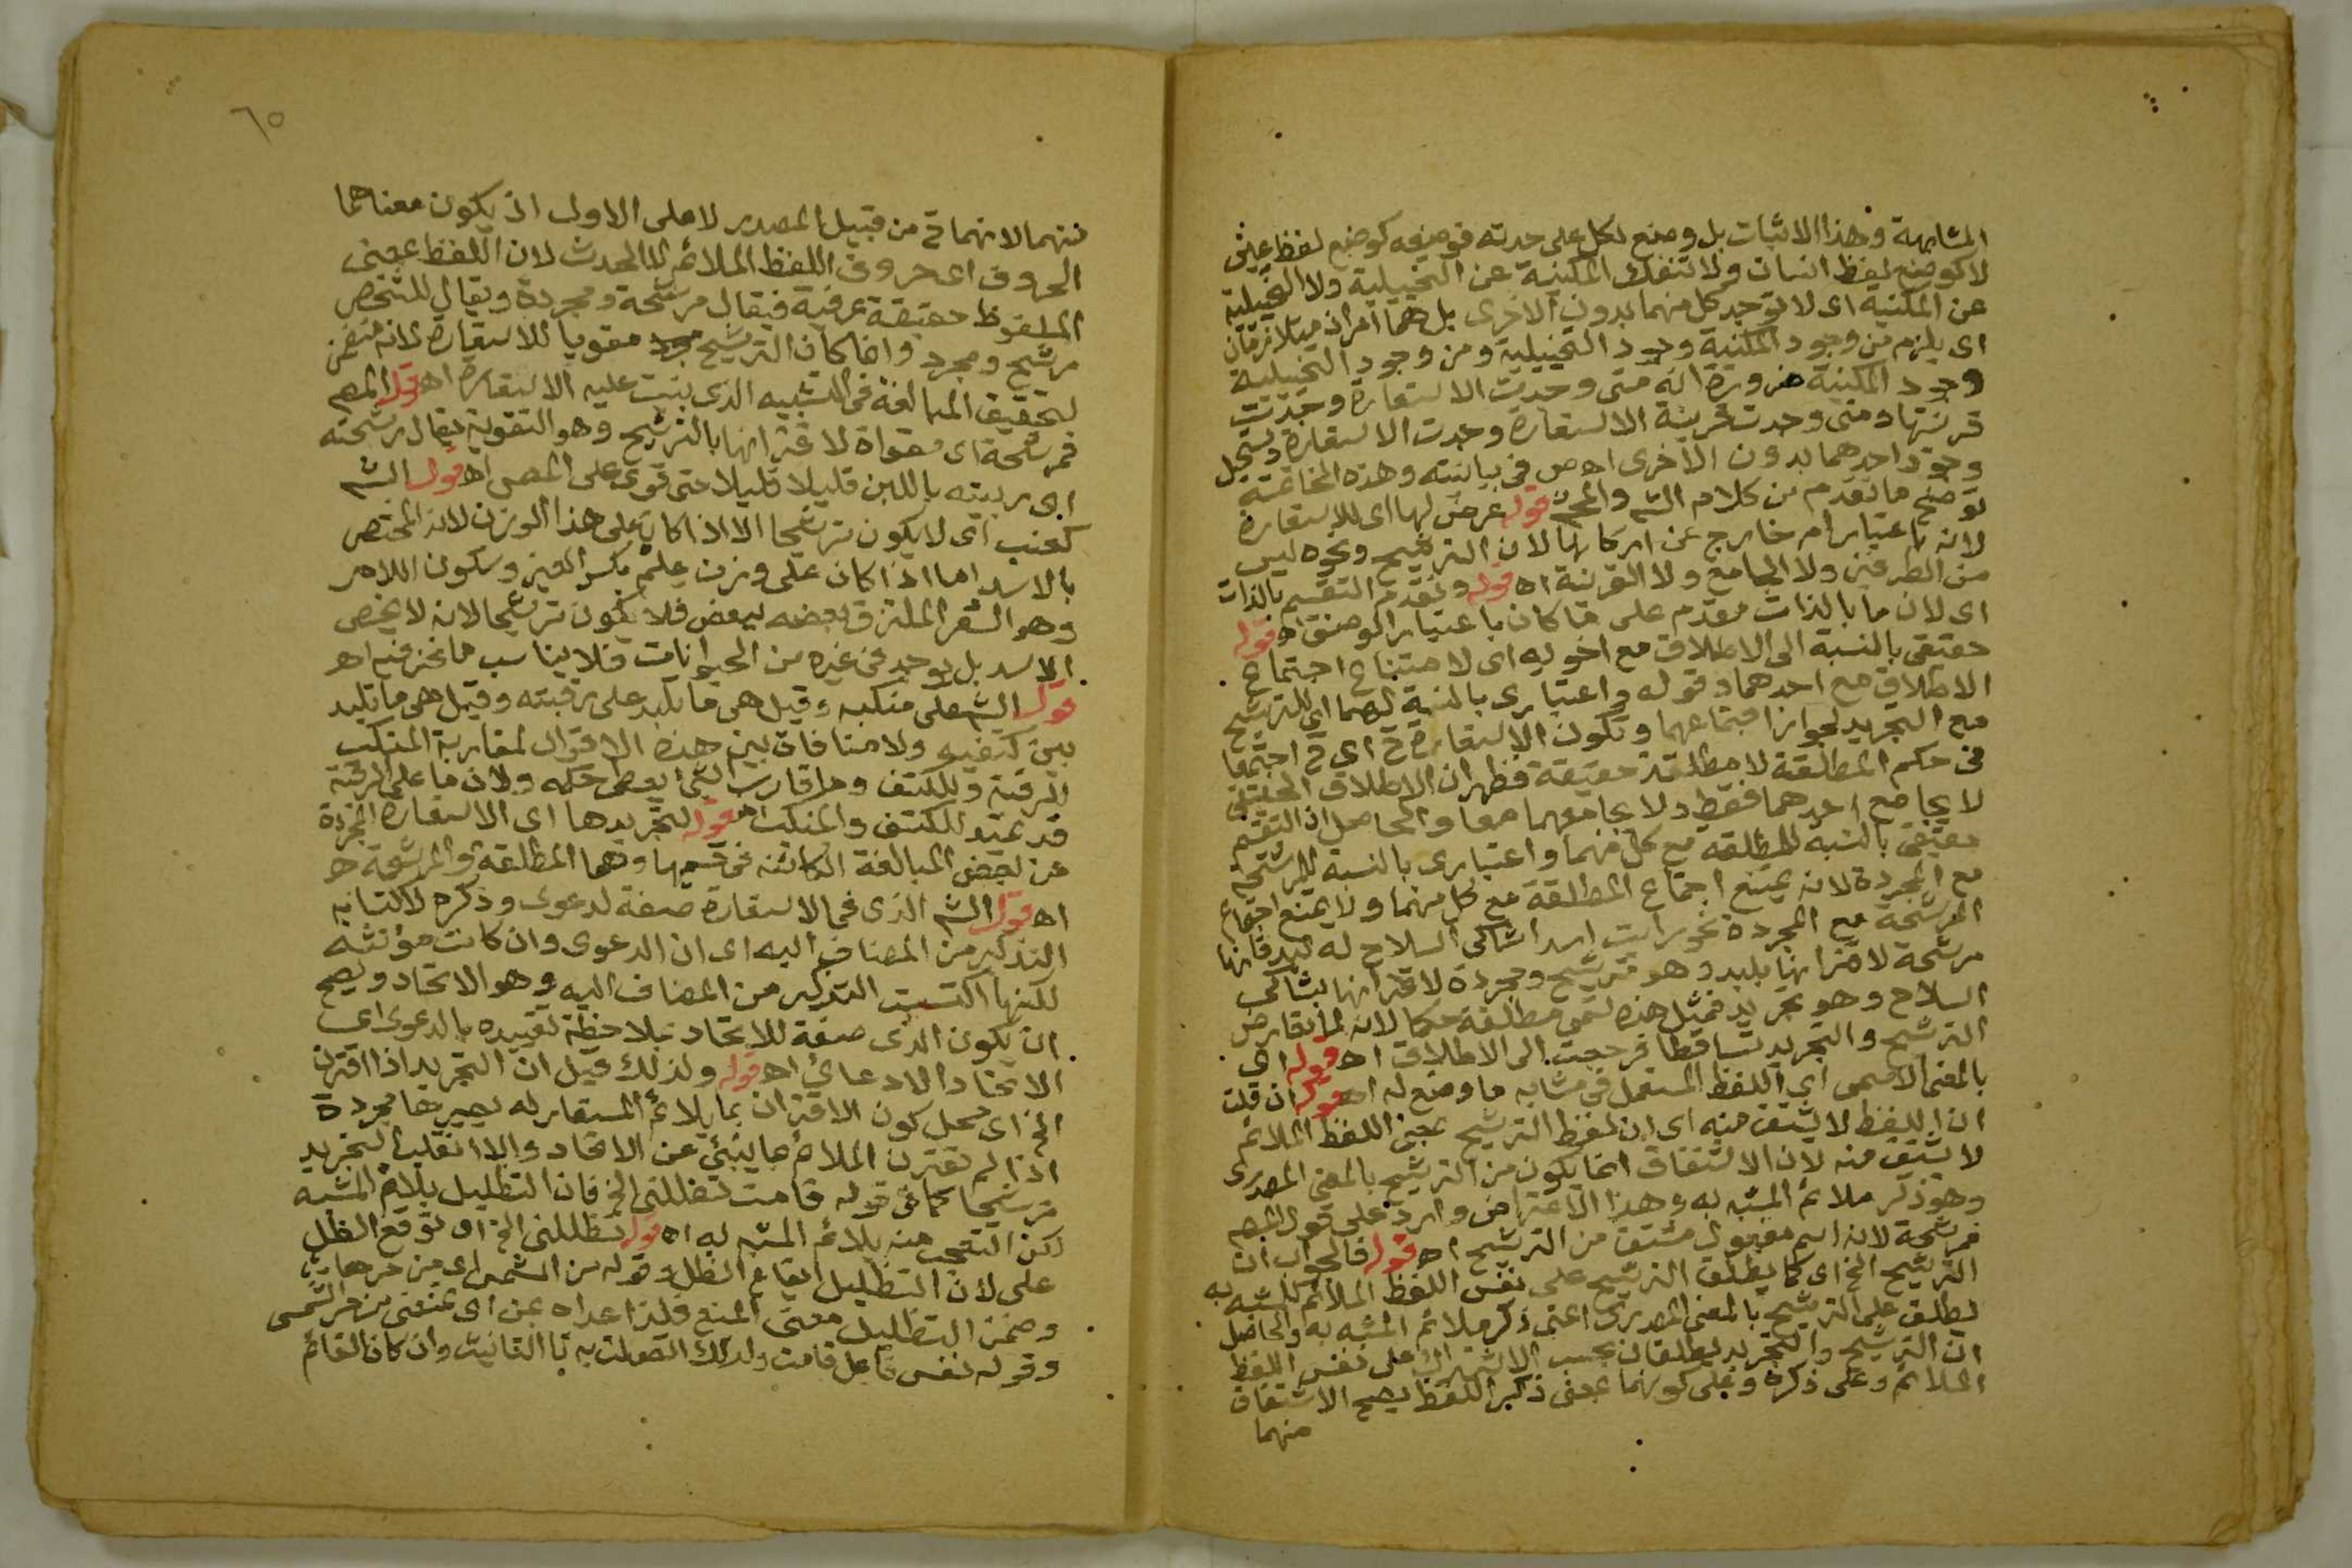 المشابهة وهذا الاثبات بل وضع لكل على حدته فوضعه كوضع لفظ عين
لا كوضع لفظ انسان ولا تنفك المكنية عن التخييلية ولا التخييلية
عن المكنية اى لا توجد كل منهما بدون الاخرى بل هما امران متلازمان
اى يلزم من وجود المكنية وجود التخييلية ومن وجود التخييلية
وجود المكنية ضرورة انه متى وجدت الاستعارة وجدت
قرينتها ومتى وجدت قرينة الاستعارة وجدت الاستعارة ويستحيل
وجود احدهما بدون الاخرى اه ص فى بيانيته وهذه الخاتمة
توضح ما تقدم من كلام الش والمحشى قوله عرض لها اى للاستعارة
لانه باعتبار امر خارج عن اركانها لان الترشيح ونحوه ليس
من الطرفين ولا الجامع ولا القرينة اه قوله وتقدم التقسيم بالذات
اى لان ما بالذات مقدم على ما كان باعتبار الوصف اه قوله
حقيقى بالنسبة الى الاطلاق مع اخويه اى لامتناع اجتماع
الاطلاق مع احدهما وقوله واعتبارى بالنسبة لهما اى للترشيح
مع التجريد لجواز اجتماعهما وتكون الاستعارة ح اى ح اجتمعا
فى حكم المطلقة لا مطلقة حقيقة فظهر ان الاطلاق الحقيقى
لا يجامع احدهما فقط ولا يجامعهما معا والحاصل ان التقسيم
حقيقى بالنسبة للمطلقة مع كل منهما واعتبارى بالنسبة للمرشحة
مع المجردة لانه يمتنع اجتماع المطلقة مع كل منهما ولا يمتنع اجتماع
المرشحة مع المجردة نحو رايت اسدا شاكى السلاح له لبد فانها
مرشحة لاقترانها بلبد وهو ترشيح ومجردة لاقترانها بشاكى
السلاح وهو تجريد فمثل هذه تسمى مطلقة حكما لانه لما تعارض
الترشيح والتجريد تساقطا فرجعت الى الاطلاق اه قوله اى
بالمعنى الاسمى اى اللفظ المستعمل فى مشابه ما وضع له اه قوله ان قلت
ان اللفظ لا يشتق منه اى ان لفظ الترشيح بمعنى اللفظ الملائم
لا يشتق منه لان الاشتقاق انما يكون من الترشيح بالمعنى المصدرى
وهو ذكر ملائم المشبه به وهذا الاعتراض وارد على قول المص
فمرشحة لانه اسم مفعول مشتق من الترشيح اه قوله فالجواب ان
الترشيح الخ اى كما يطلق الترشيح على نفس اللفظ الملائم للمشبه به
يطلق على الترشيح بالمعنى المصدرى اعنى ذكر ملائم المشبه به والحاصل
ان الترشيح والتجريد يطلقان بحسب الاشتراك على نفس اللفظ
الملائم وعلى ذكره وعلى كونهما بمعنى ذكر اللفظ يصح الاشتقاق
منهما
٦٥
منهما لانهما ح من قبيل المصدر لا على الاول اذ يكون معناهما
الحروف اى حروف اللفظ الملائم لا الحدث لان اللفظ بمعنى
الملفوظ حقيقة عرفية فيقال مرشحة ومجردة ويقال للشخص
مرشح ومجرد وانما كان الترشيح مقويا للاستعارة لانه متضمن
لتحقيق المبالغة فى التشبيه الذى بنيت عليه الاستعارة اه قوله المص
فمرشحة اى مقواة لاقترانها بالترشيح وهو التقوية يقال رشحته
اى ربيته باللبن قليلا قليلا حتى قوى على المص اه قول الش
كعنب اى لا يكون ترشيحا الا اذا كان على هذا الوزن لانه المختص
بالاسد اما اذا كان على وزن علم بكسر العين وسكون اللام
وهو الشعر الملتزق بعضه ببعض فلا يكون ترشيحا لانه لا يخص
الاسد بل يوجد فى غيره من الحيوانات فلا يناسب ما نحن فيه اه
قول الش على منكبه وقيل هى ما تلبد على رقبته وقيل هى ما تلبد
بين كتفيه ولا منافاة بين هذه الاقوال لمقاربة المنكب
للرقبة وللكتف وما قارب الشى يعطى حكمه ولان ما على الرقبة
قد يمتد للكتف والمنكب اه قوله لتجريدها اى الاستعارة المجردة
عن بعض المبالغة الكائنه فى قسميها وهما المطلقة والمرشحة
اه قول الش الذى فى الاستعارة صفة لدعوى وذكره لاكتسابه
التذكير من المضاف اليه اى ان الدعوى وان كانت مؤنثه
لكنها اكتسبت التذكير من المضاف اليه وهو الاتحاد ويصح
ان يكون الذى صفة للاتحاد بملاحظة تقييده بالدعوى اى
الاتحاد الادعائى اه قوله ولذلك قيل ان التجريد اذا اقترن
الخ اى محل كون الاقتران بما يلائم المستعار له يصيرها مجردة
اذا لم يقترن الملائم بما ينبئ عن الاتحاد والا انقلب التجريد
ترشيحا كما فى قوله قامت تظللنى الخ فان التظليل يلائم المشبه
لكن التعجب منه يلائم المشبه به اه قوله تظللنى الخ اى توقع الظل
على لان التظليل ايقاع الظل وقوله من الشمس اى من حرها
وضمن التظليل معنى المنع فلذا عداه بمن اى تمنعنى من حر الشمس
وقوله نفس فاعل قامت ولذلك اتصلت به تا التانيث وان كان القائم